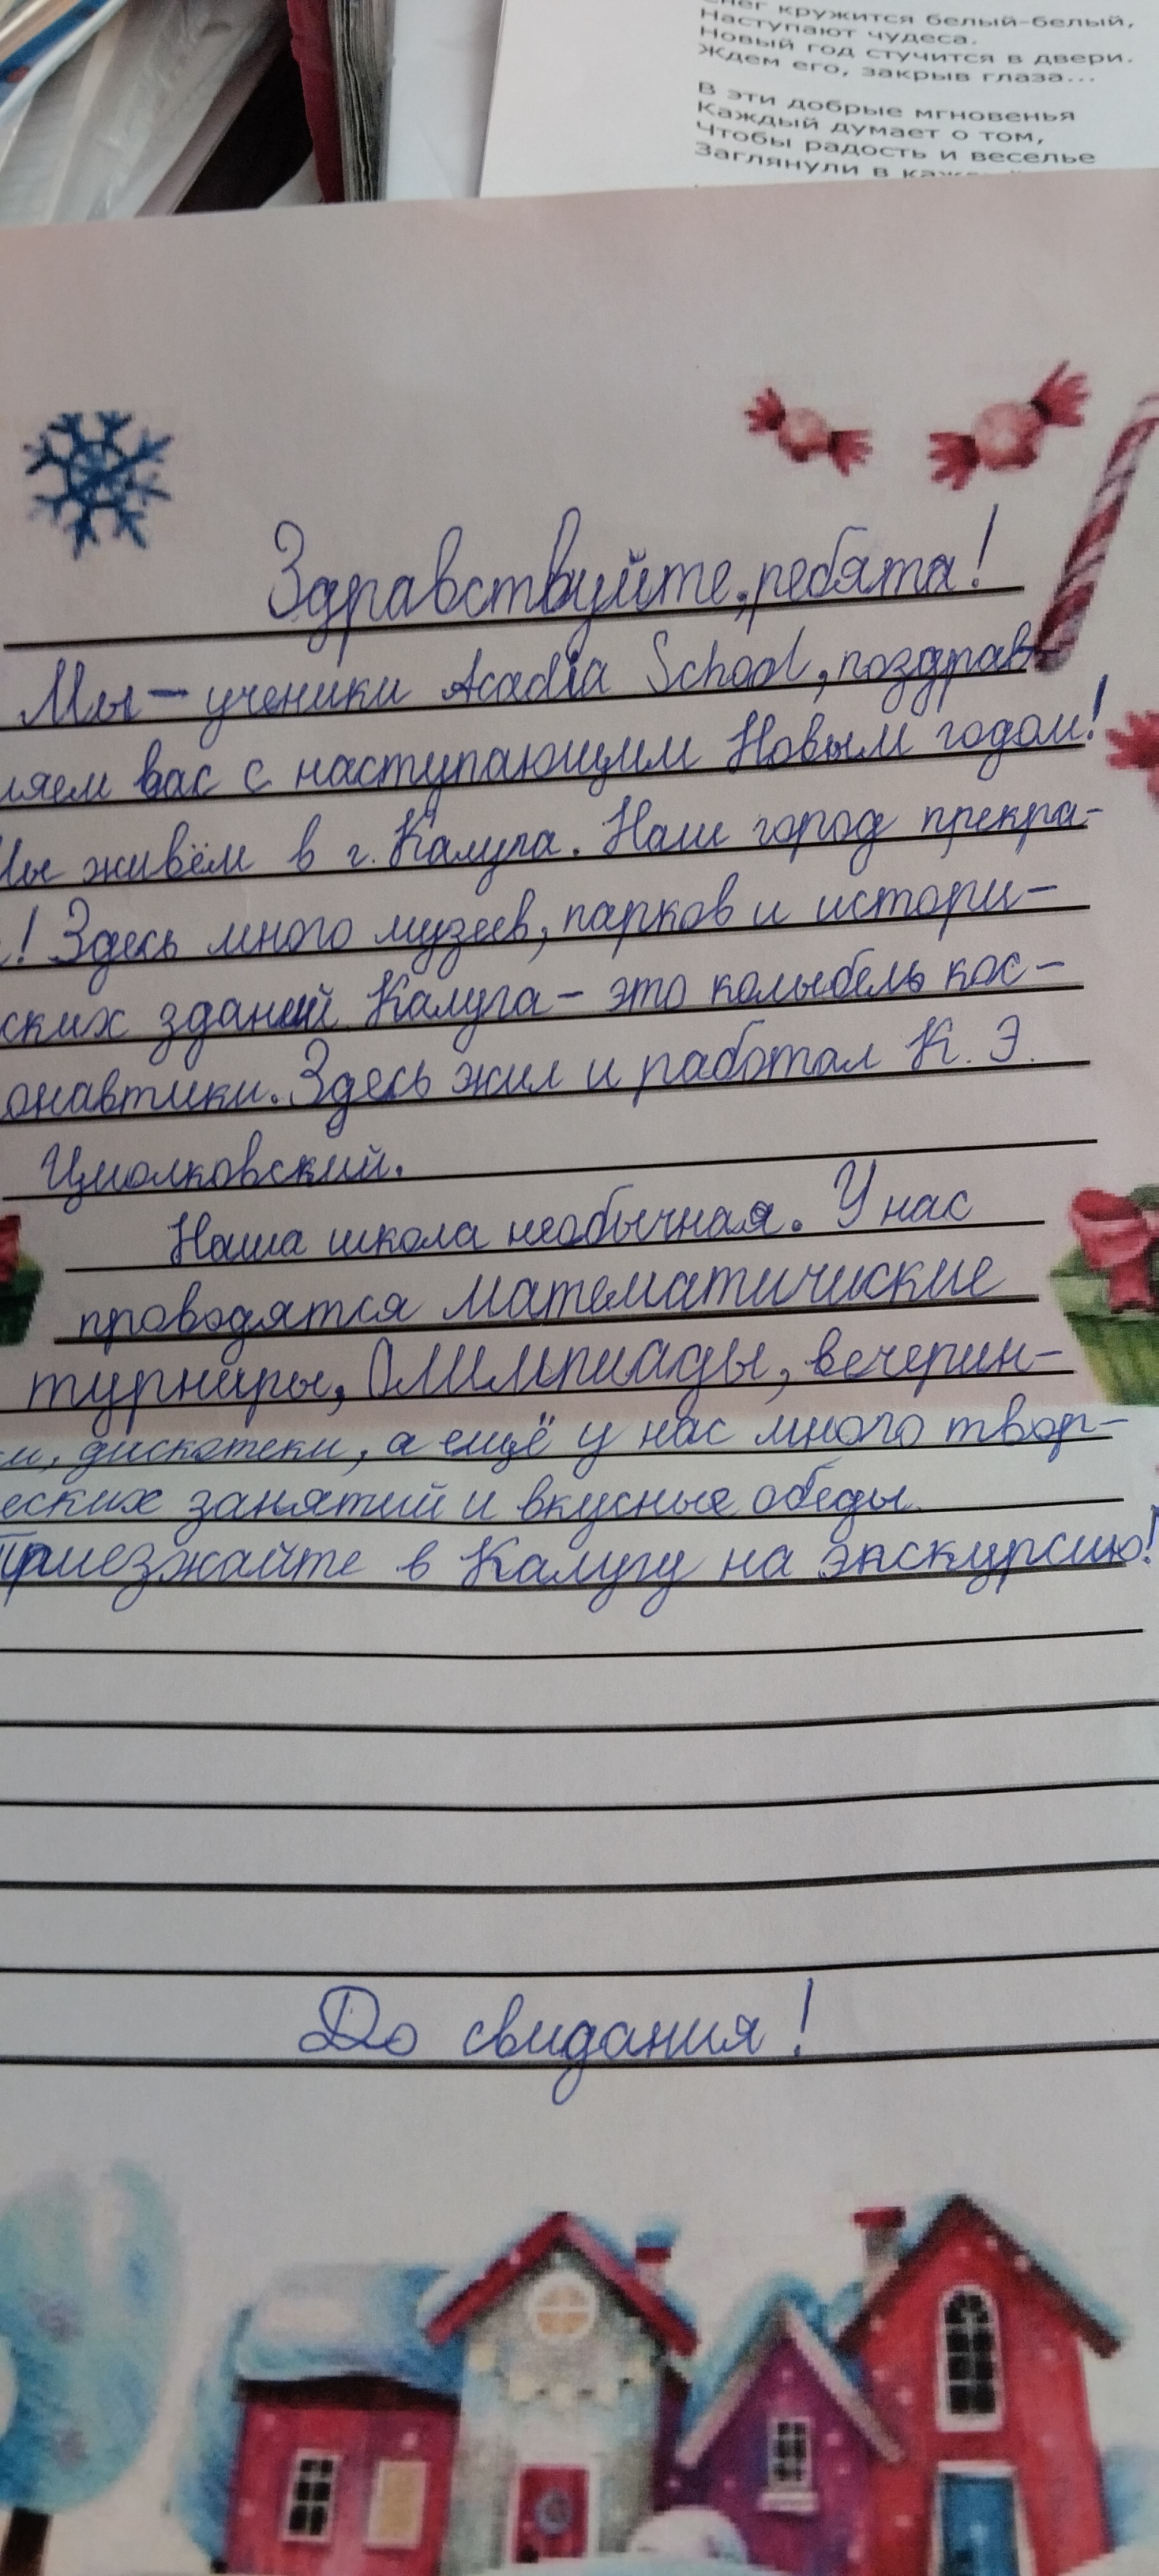 Снег кружится белый-белый,
Наступают чудеса.
Новый год стучится в двери.
Ждем его, закрыв глаза...
В эти добрые мгновенья
Каждый думает о том,
Чтобы радость и веселье
Заглянули в
Здравствуйте, ребята!
Мы – ученики Acadia School, поздрав-
ляем вас с наступающим Новым годом!
Мы живём в г. Калуга. Наш город прекра-
! Здесь много музеев, парков и истори-
ских зданий. Калуга – это колыбель кос-
онавтики. Здесь жил и работал К. Э.
Циолковский.
Наша школа необычная. У нас
проводятся математические
турниры, Олимпиады, вечерин-
и, дискотеки, а ещё у нас много твор-
еских занятий и вкусные обеды.
Приезжайте в Калугу на экскурсию!
До свидания!